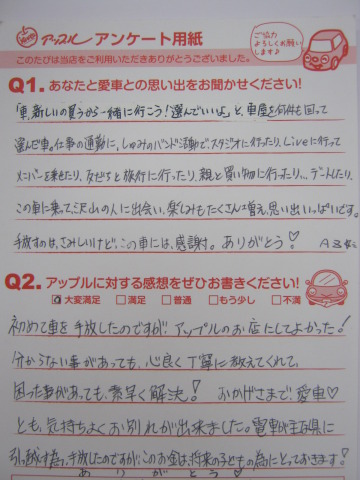 アップル アンケート用紙
ご協力
よろしくお願い
します♪
このたびは当店をご利用いただきありがとうございました。
Q1. あなたと愛車との思い出をお聞かせください!
「車、新しいの買うから一緒に行こう!選んでいいよ」と、車屋を何件も回って
選んだ車。仕事の通勤に、しゅみのバンド活動で、スタジオに行ったり、Liveに行って
メンバーを乗せたり、友だちと旅行に行ったり、親と買い物に行ったり...デートしたり、
この車に乗って、沢山の人に出会い、楽しみもたくさん増え、思い出いっぱいです。
手放すのは、さみしいけど、この車には、感謝。ありがとう♡
Q2. アップルに対する感想をぜひお書きください!
大変満足 □満足 □普通 □もう少し □不満
初めて車を手放したのですが、アップルのお店にしてよかった!
分からない事があっても、心良く丁寧に教えてくれて、
困った事があっても、素早く解決! おかげさまで!愛車♡
とも、気持ちよくお別れが出来ました。電車が
引っ越す為、手放したのですが、このお金は、将来の子どもの為にとっておきます!
ありがとう♡